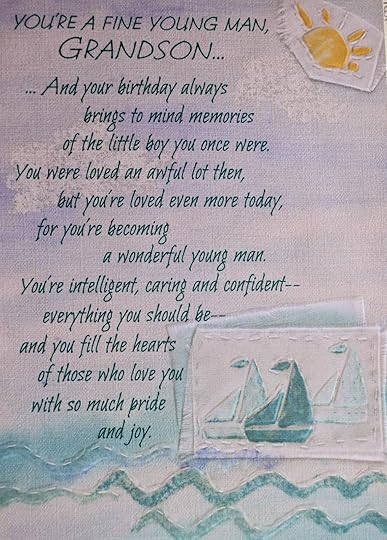 YOU'RE A FINE YOUNG MAN,
GRANDSON...
... And your birthday always
brings to mind memories
of the little boy you once were.
You were loved an awful lot then,
but you're loved even more today,
for you're becoming
a wonderful young man.
You're intelligent, caring and confident--
everything you should be--
and you fill the hearts
of those who love you
with so much pride
and joy.